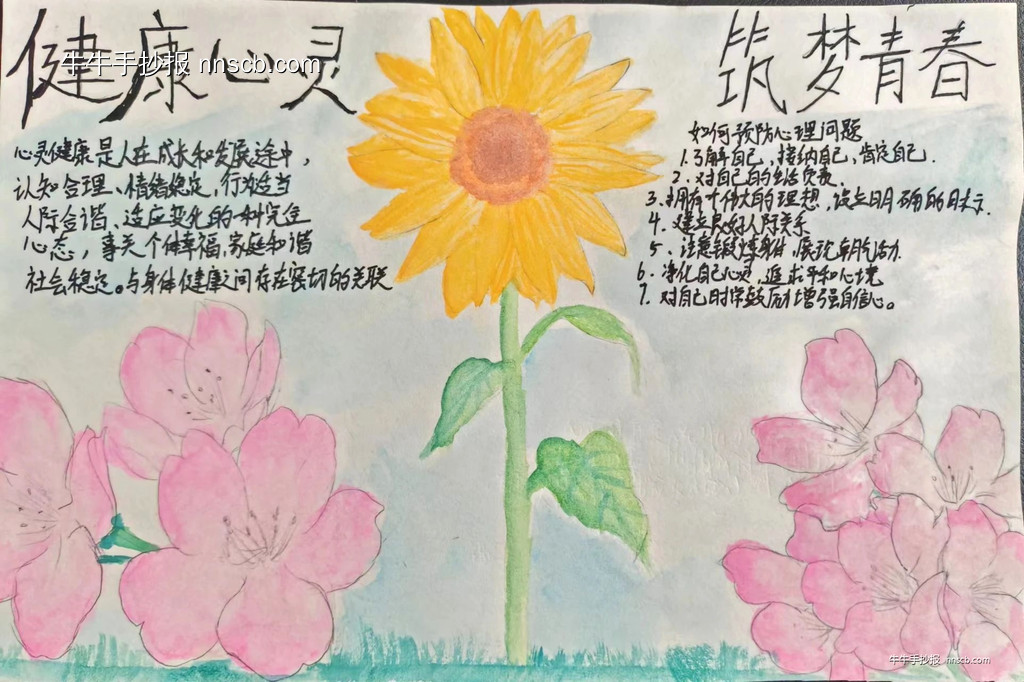 健康心灵
筑梦青春
牛牛手抄报 nnscb.com
心灵健康是人在成长和发展途中，
认知合理、情绪稳定、行为适当
人际合谐、适应变化的一种完全
心态，事关个体幸福、家庭和谐
社会稳定。与身体健康间存在密切的关联
如何预防心理问题
1.了解自己，接纳自己，肯定自己.
2.对自己的生活负责.
3.拥有个伟大的理想，设立明确的目标.
4.建立良好人际关系
5.注意锻炼身体,展现朝气活力
6.净化自己心灵,追求平和心境
7.对自己时常鼓励增强自信心。
牛牛手抄报 nnscb.com